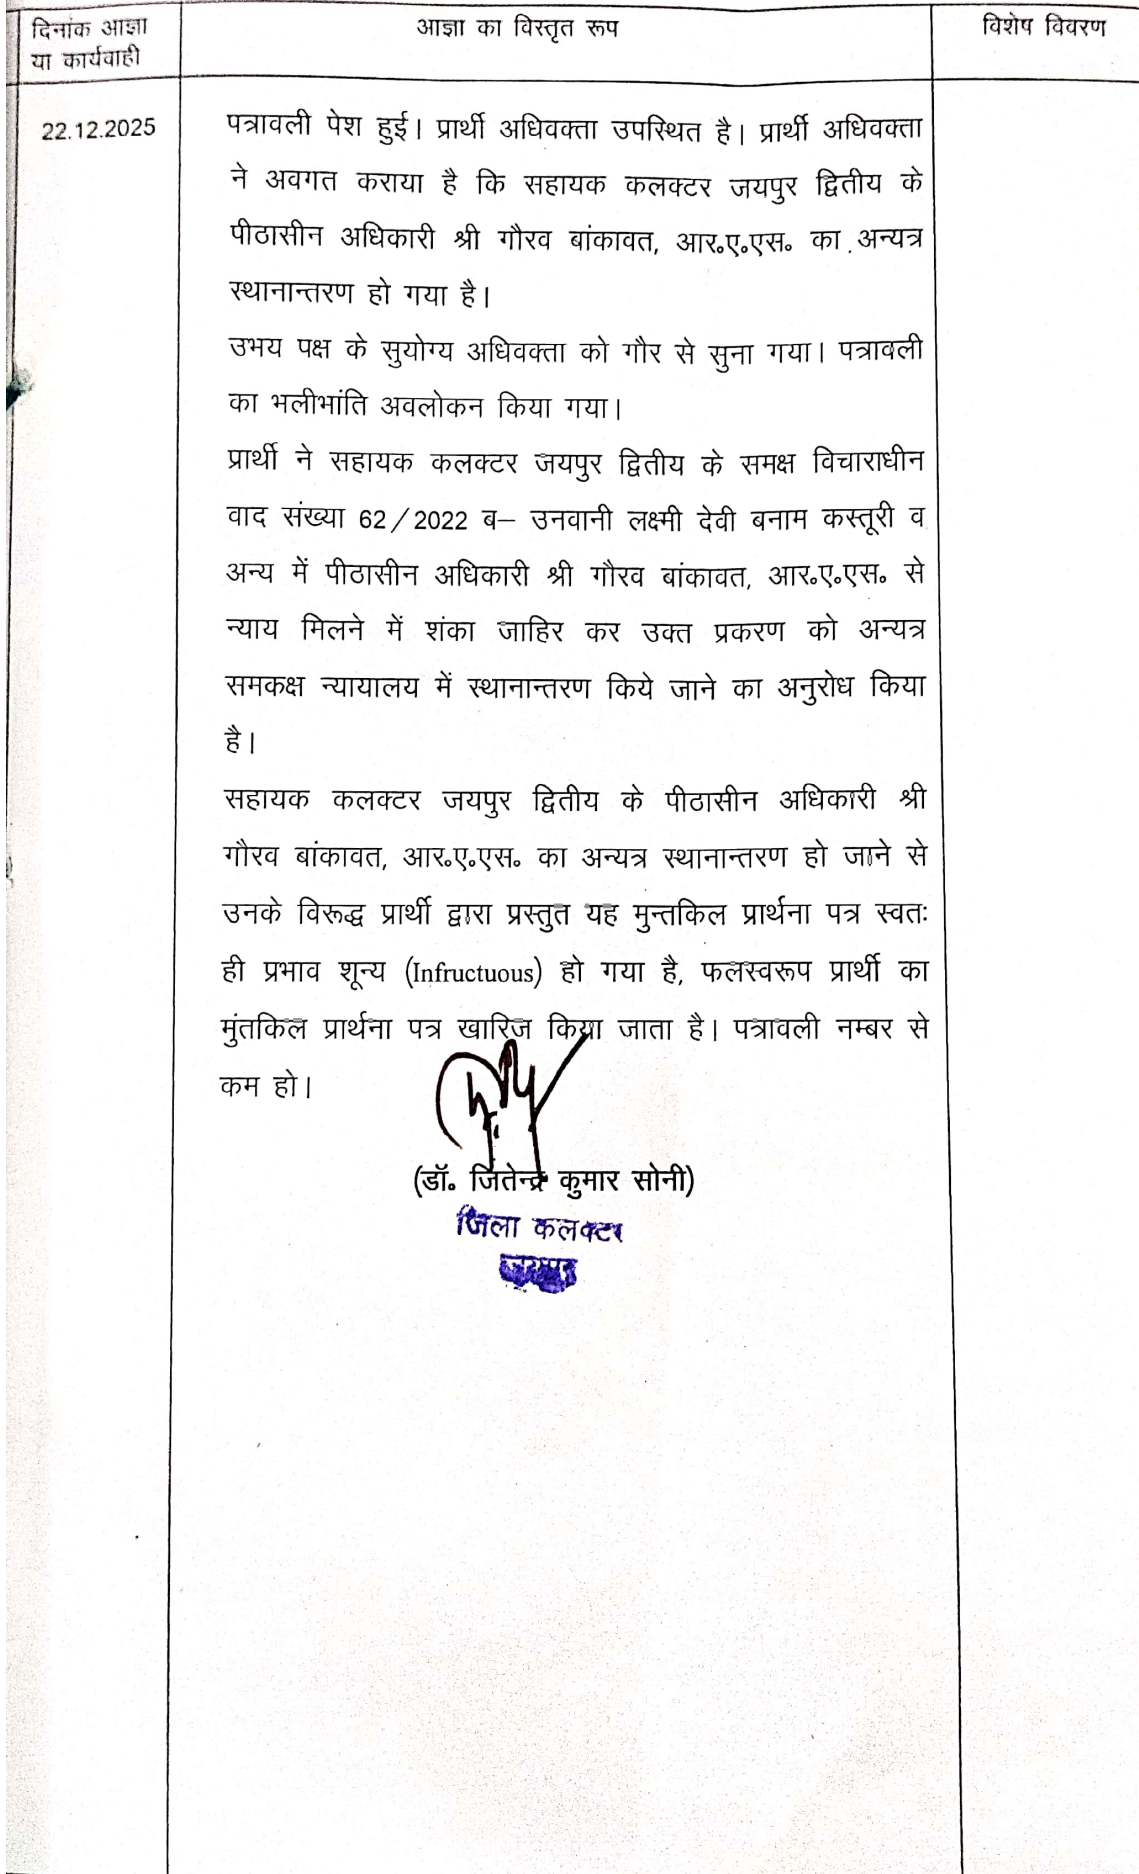 दिनांक आज्ञा
या कार्यवाही
आज्ञा का विस्तृत रूप
विशेष विवरण
22.12.2025
पत्रावली पेश हुई। प्रार्थी अधिवक्ता उपस्थित है। प्रार्थी अधिवक्ता
ने अवगत कराया है कि सहायक कलक्टर जयपुर द्वितीय के
पीठासीन अधिकारी श्री गौरव बांकावत, आर॰ए॰एस॰ का अन्यत्र
स्थानान्तरण हो गया है।
उभय पक्ष के सुयोग्य अधिवक्ता को गौर से सुना गया। पत्रावली
का भलीभांति अवलोकन किया गया।
प्रार्थी ने सहायक कलक्टर जयपुर द्वितीय के समक्ष विचाराधीन
वाद संख्या 62/2022 ब– उनवानी लक्ष्मी देवी बनाम कस्तूरी व
अन्य में पीठासीन अधिकारी श्री गौरव बांकावत, आर॰ए॰एस॰ से
न्याय मिलने में शंका जाहिर कर उक्त प्रकरण को अन्यत्र
समकक्ष न्यायालय में स्थानान्तरण किये जाने का अनुरोध किया
है।
सहायक कलक्टर जयपुर द्वितीय के पीठासीन अधिकारी श्री
गौरव बांकावत, आर॰ए॰एस॰ का अन्यत्र स्थानान्तरण हो जाने से
उनके विरूद्ध प्रार्थी द्वारा प्रस्तुत यह मुन्तकिल प्रार्थना पत्र स्वतः
ही प्रभाव शून्य (Infructuous) हो गया है, फलस्वरूप प्रार्थी का
मुंतकिल प्रार्थना पत्र खारिज किया जाता है। पत्रावली नम्बर से
कम हो।
(डॉ॰ जितेन्द्र कुमार सोनी)
जिला कलक्टर
जयपुर